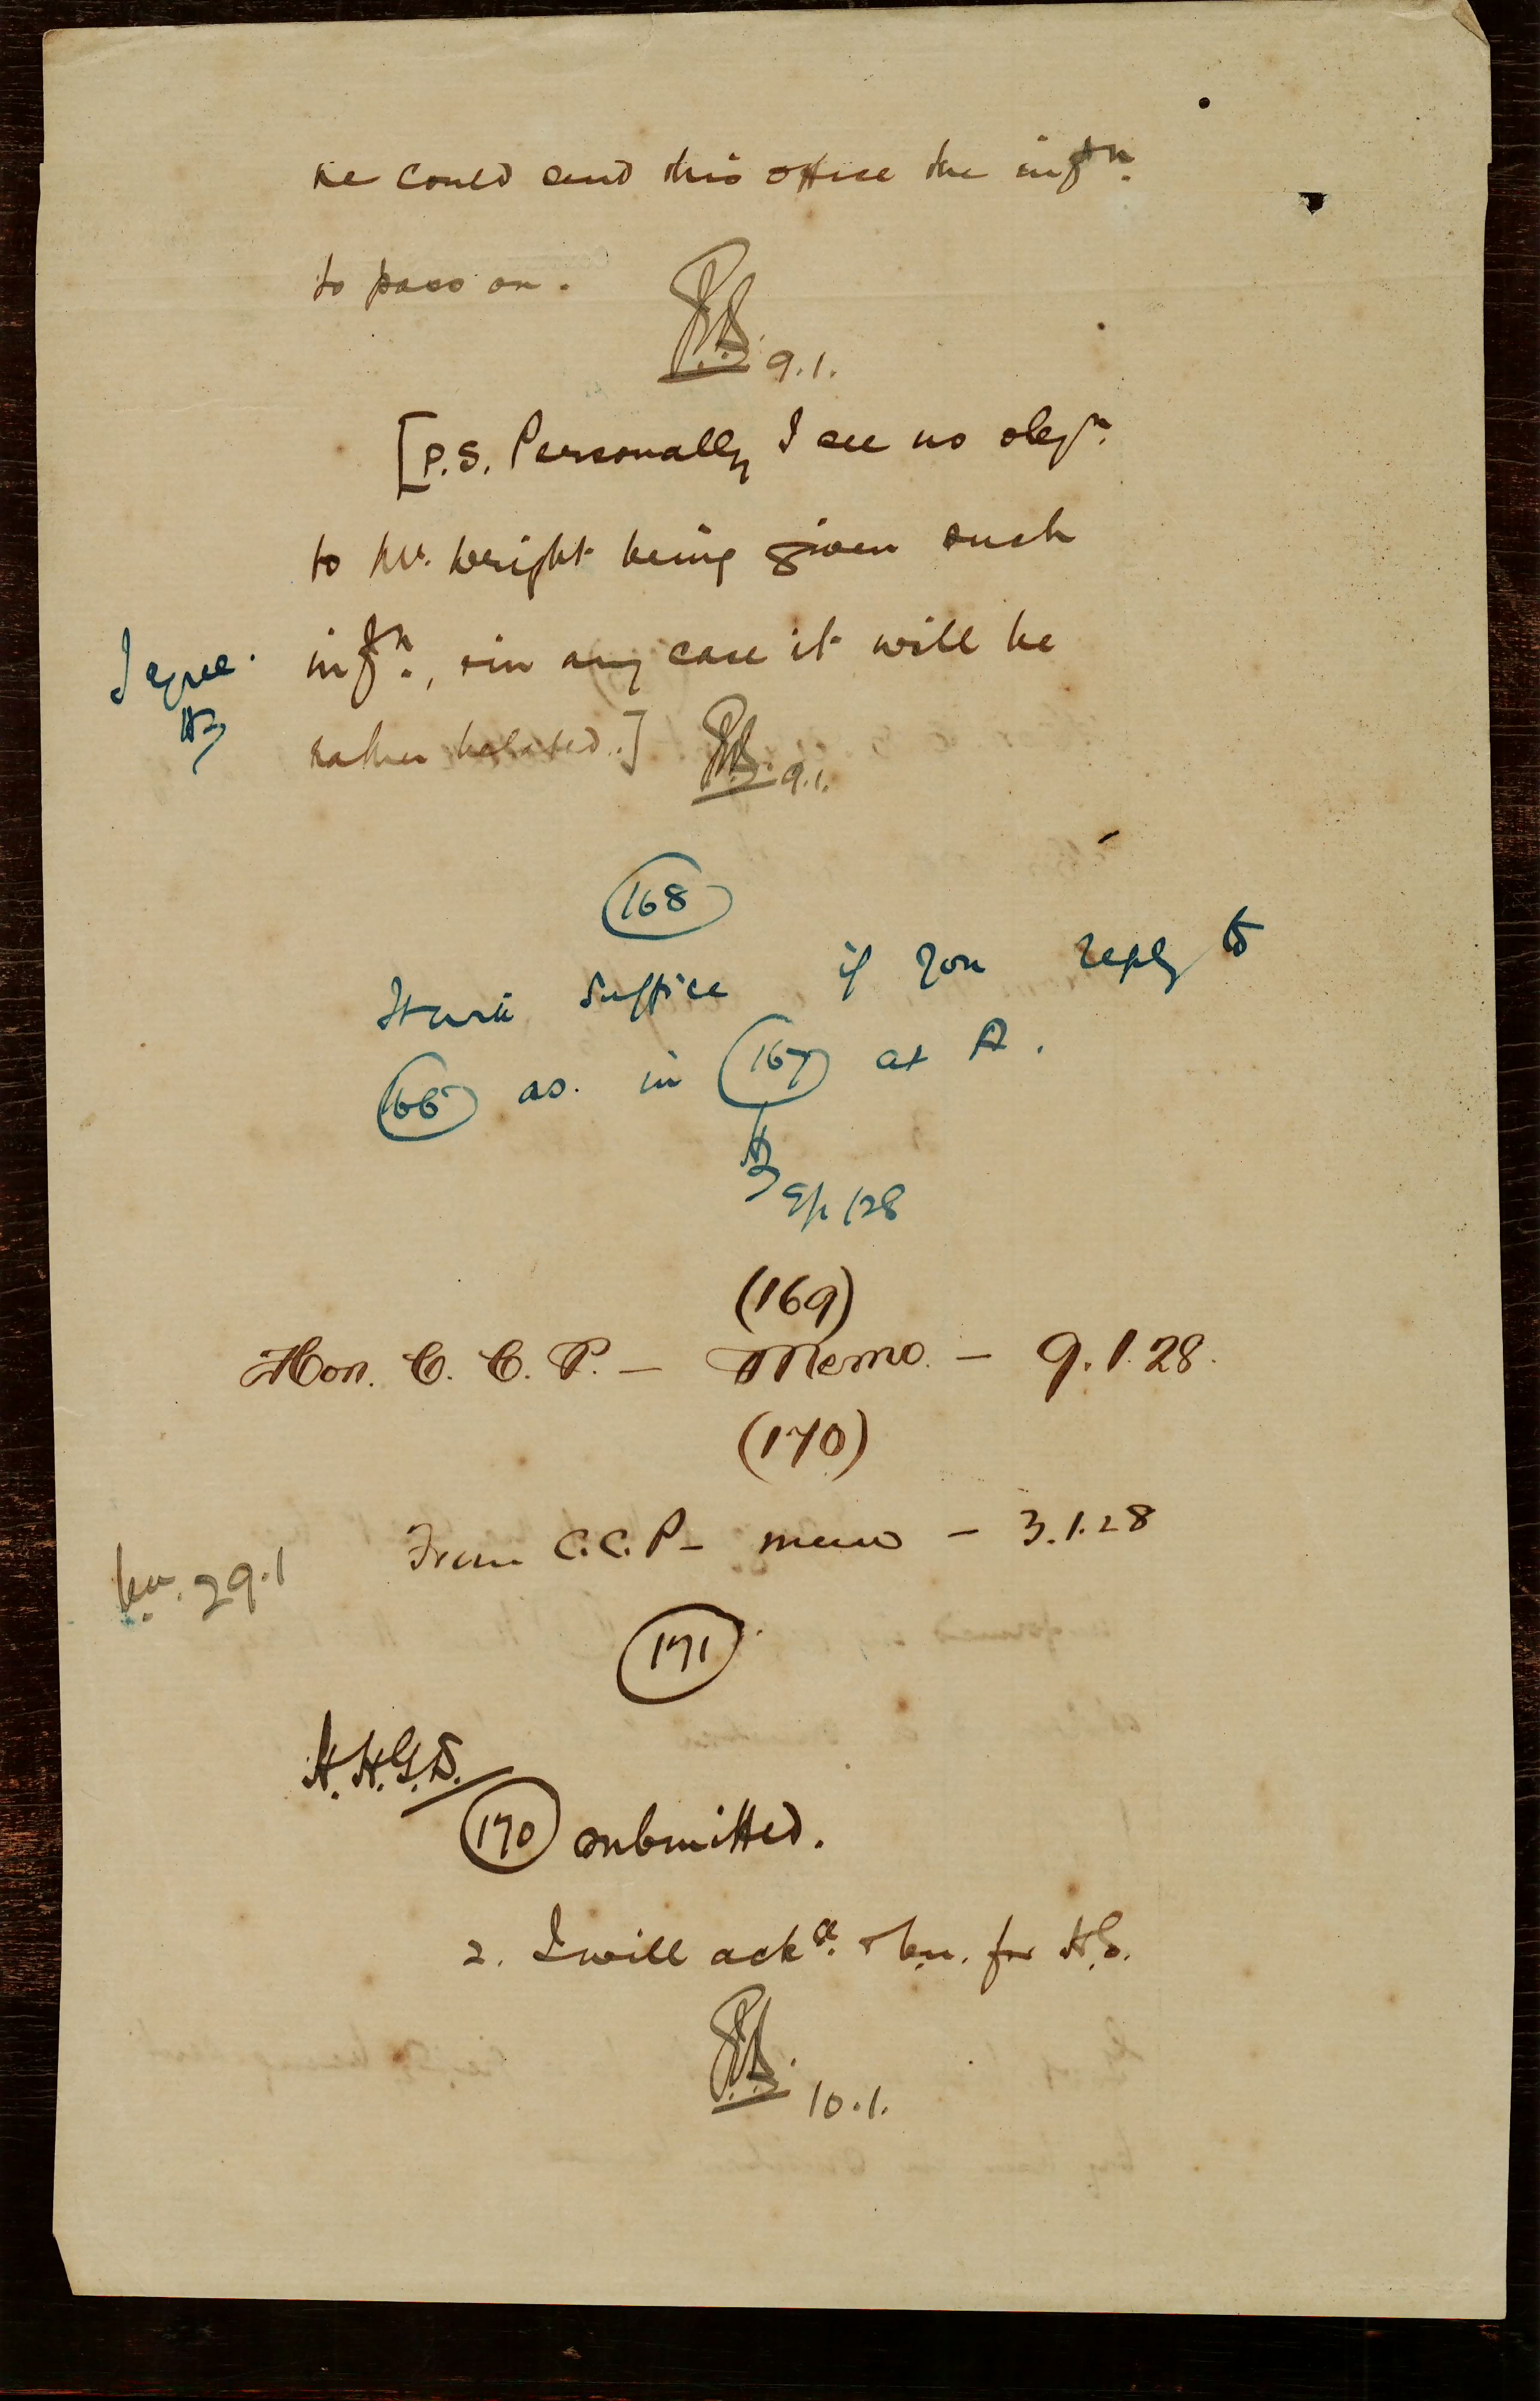 he could send this office the infn.
to pass on.
9.1.
[P.S. Personally I see no objn.
to Mr. Wright being given such
infn., & in any case it will be
I agree.
rather belated.]
9.1.
(168)
It will suffice if you reply to
(166) as in (167) at A.
9/1/28
(169)
Hon. C. C. P. — Memo. — 9.1.28.
(170)
From C.C.P — memo — 3.1.28
b.u. 29.1
(171)
H.H.G.S.
(170) submitted.
2. I will ack & b.u. for H.S.
10.1.